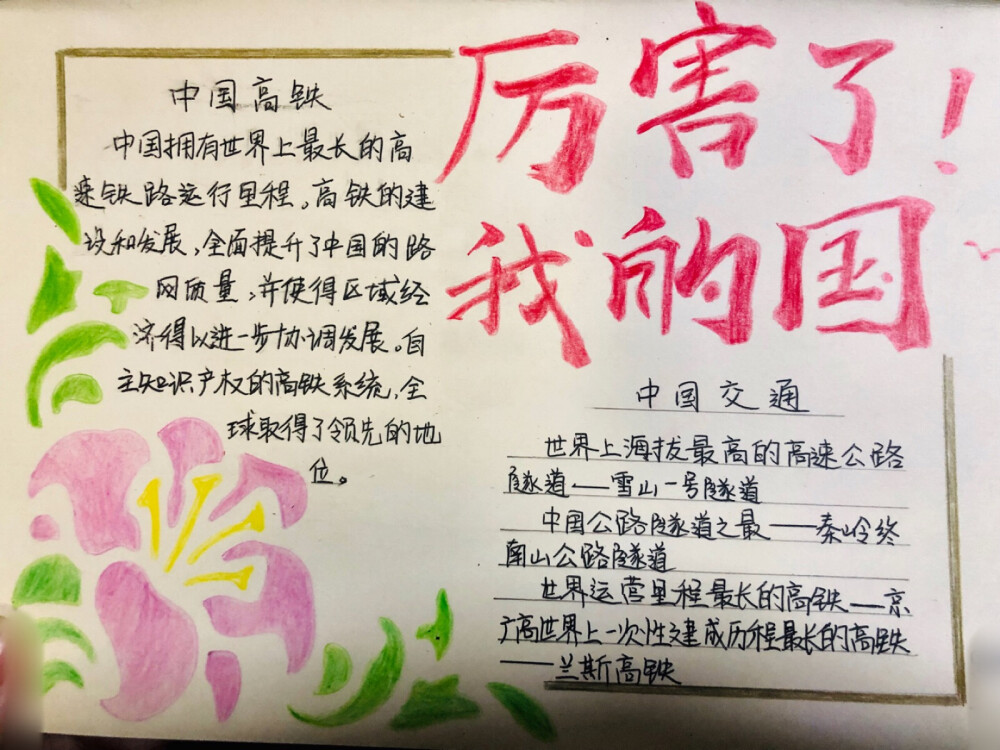 厉害了！
我的国
中国高铁
中国拥有世界上最长的高
速铁路运行里程。高铁的建
设和发展，全面提升了中国的路
网质量，并使得区域经
济得以进一步协调发展。自
主知识产权的高铁系统，全
球取得了领先的地
位。
中国交通
世界上海拔最高的高速公路
隧道——雪山一号隧道
中国公路隧道之最——秦岭终
南山公路隧道
世界运营里程最长的高铁——京
广高世界上一次性建成历程最长的高铁
——兰斯高铁